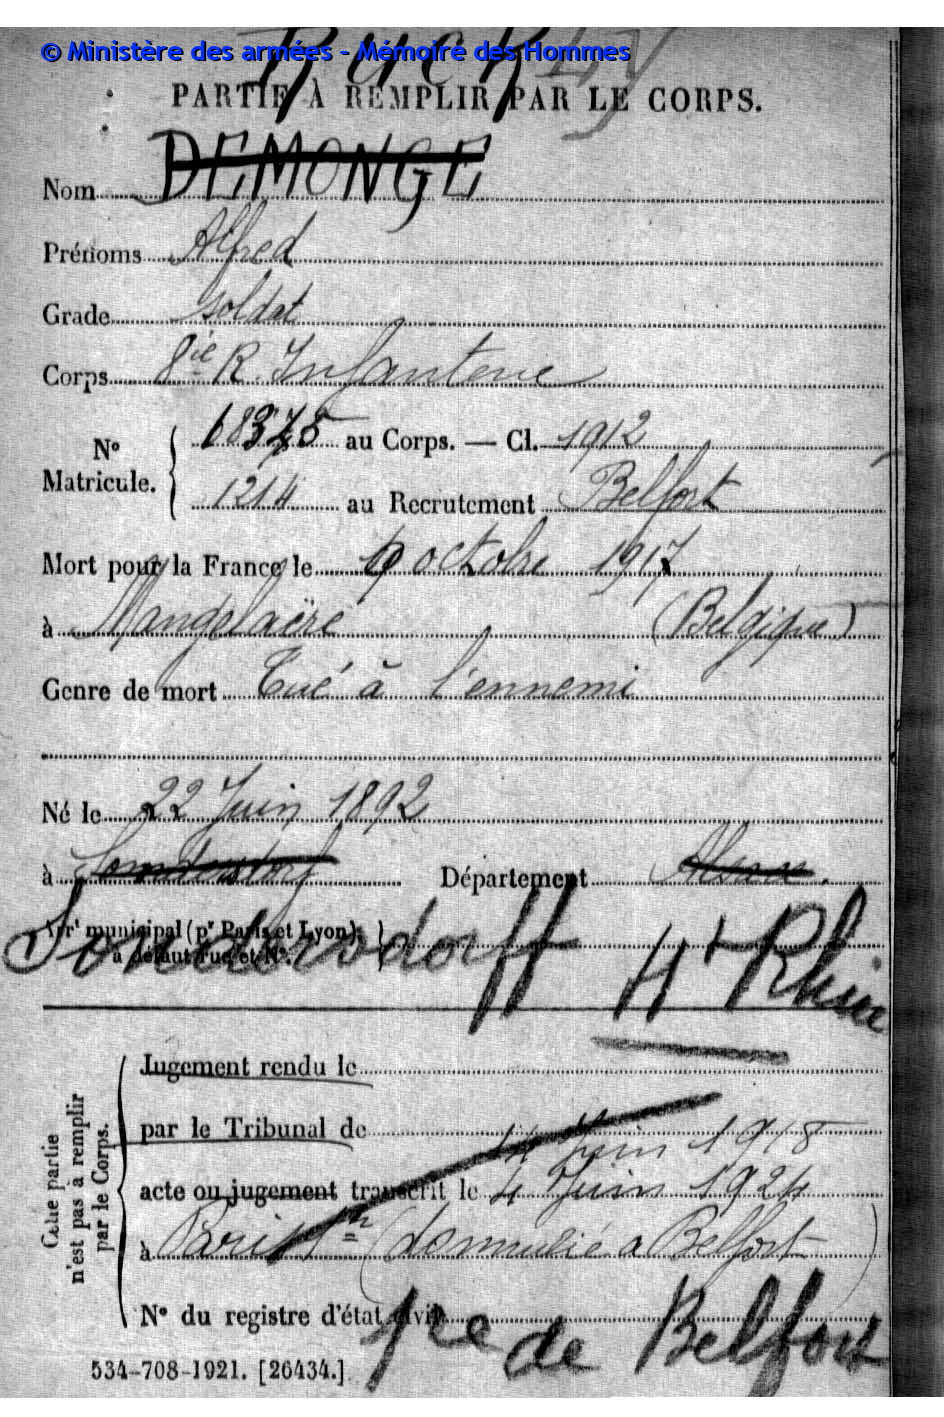 © Ministère des armées - Mémoire des Hommes
PARTIE À REMPLIR PAR LE CORPS.
Nom DEMONGE
Prénoms Alfred
Grade soldat
Corps 8ie R. Infanterie
N° Matricule. 68375 au Corps. — Cl. 1912
1214 au Recrutement Belfort
Mort pour la France le 9 octobre 1917
à Mangelaëre (Belgique)
Genre de mort Tué à l'ennemi
Né le 22 Juin 1892
à Sondersdorf Département Alsace.
Arrt municipal (pr Paris et Lyon),
à défaut rue et N°.
Sondersdorff Ht Rhin
Cette partie n'est pas à remplir par le Corps.
Jugement rendu le
par le Tribunal de
14 Juin 1918
acte ou jugement transcrit le 4 Juin 1924
à Paris (domicilié à Belfort)
N° du registre d'état civil
pce de Belfort
534-708-1921. [26434.]